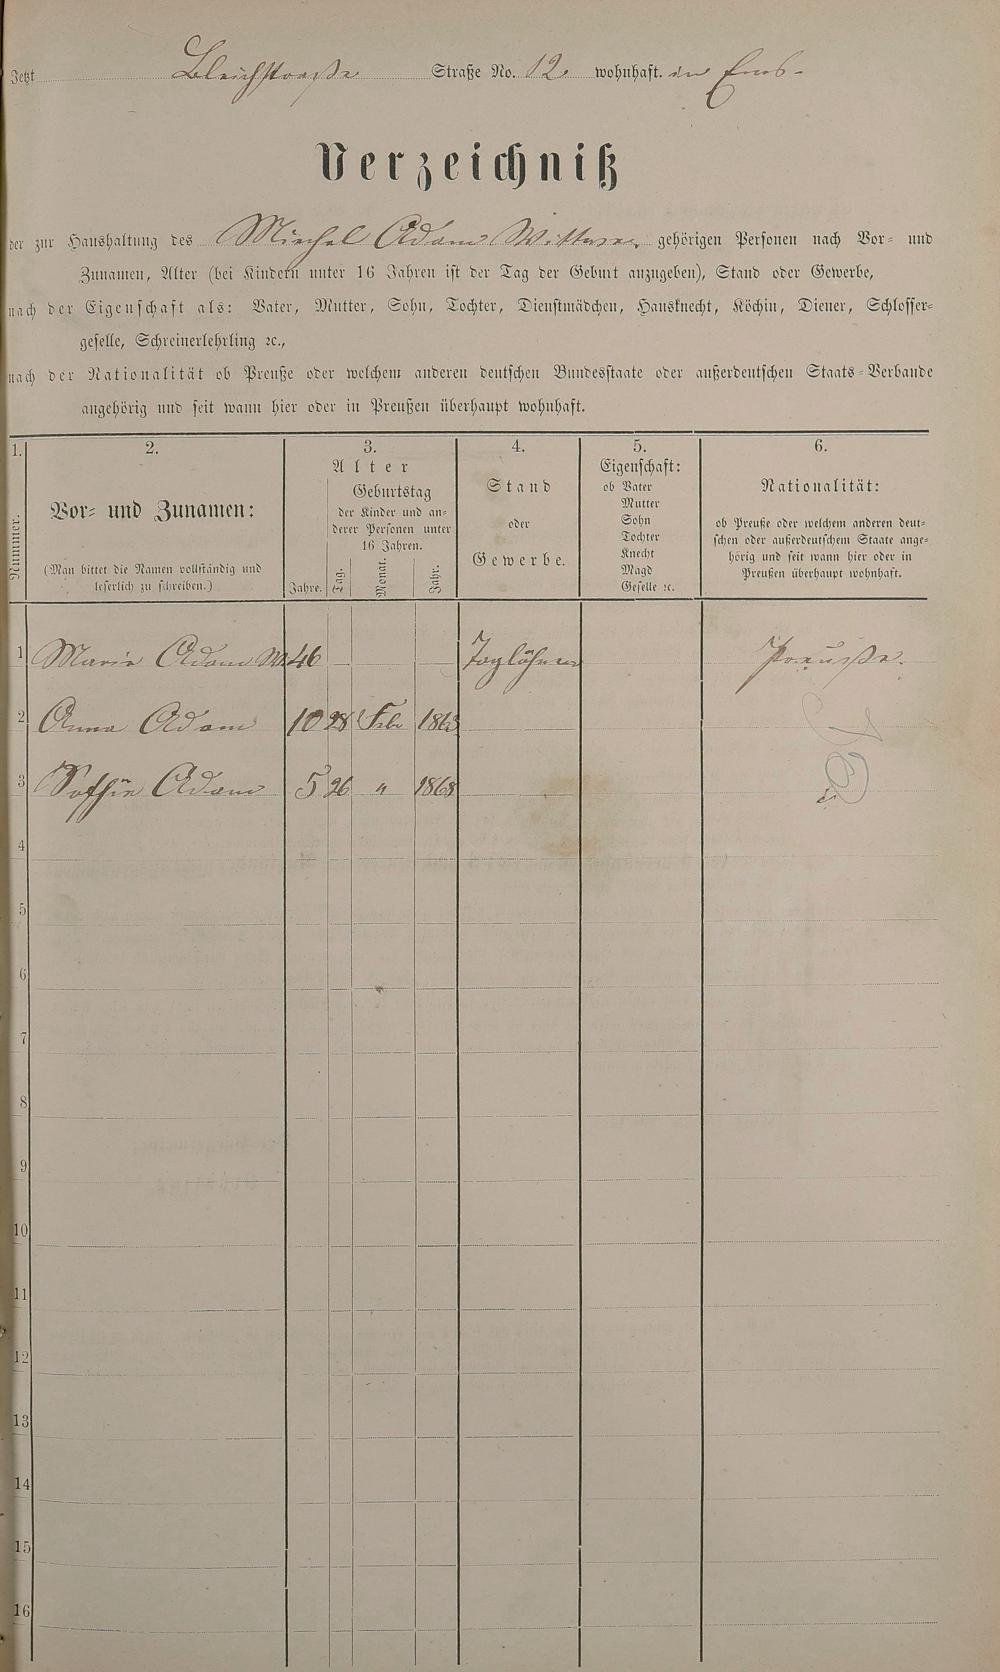 Jetzt Bleichstraße Straße No. 12. wohnhaft. in Ems.
Verzeichniß
der zur Haushaltung des Michel Adam Wittwe. gehörigen Personen nach Vor- und
Zunamen, Alter (bei Kindern unter 16 Jahren ist der Tag der Geburt anzugeben), Stand oder Gewerbe,
nach der Eigenschaft als: Vater, Mutter, Sohn, Tochter, Dienstmädchen, Hausknecht, Köchin, Diener, Schlosser-
geselle, Schreinerlehrling ꝛc.,
nach der Nationalität ob Preuße oder welchem anderen deutschen Bundesstaate oder außerdeutschen Staats-Verbande
angehörig und seit wann hier oder in Preußen überhaupt wohnhaft.
1. 2. 3. 4. 5. 6.
Nummer.
Vor- und Zunamen:
(Man bittet die Namen vollständig und
leserlich zu schreiben.)
Alter
Jahre.
Geburtstag
der Kinder und an-
derer Personen unter
16 Jahren.
Tag. Monat. Jahr.
Stand
oder
Gewerbe.
Eigenschaft:
ob Vater
Mutter
Sohn
Tochter
Knecht
Magd
Geselle ꝛc.
Nationalität:
ob Preuße oder welchem anderen deut-
schen oder außerdeutschem Staate ange-
hörig und seit wann hier oder in
Preußen überhaupt wohnhaft.
1 Marie Adam W. 46 Taglöhner Preuße.
2 Anna Adam 10 28 Feb 1863
3 Sofhie Adam 5 26 " 1868
4
5
6
7
8
9
10
11
12
13
14
15
16